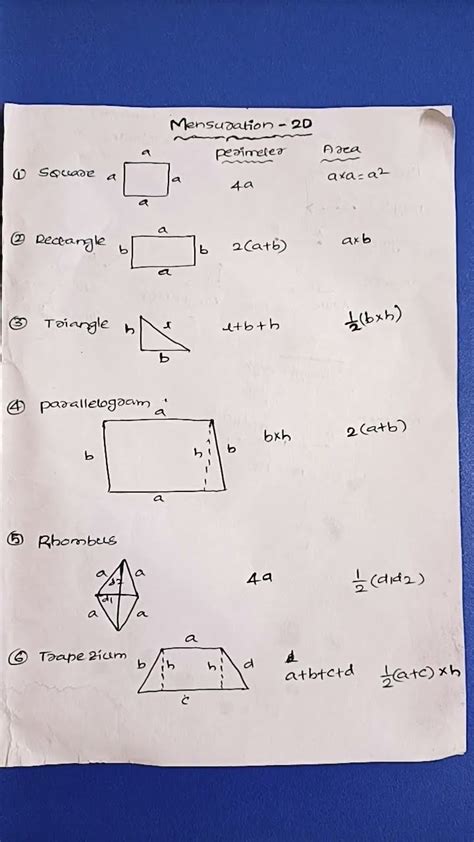 Mensuration - 2D
Perimeter Area
① Square a a a a 4a a×a=a²
② Rectangle a b b a 2(a+b) a×b
③ Triangle h l b l+b+h 1/2(b×h)
④ Parallelogram a b h b a b×h 2(a+b)
⑤ Rhombus
a a d2 d1 a a 4a 1/2(d1d2)
⑥ Trapezium a b h h d c a+b+c+d 1/2(a+c)×h